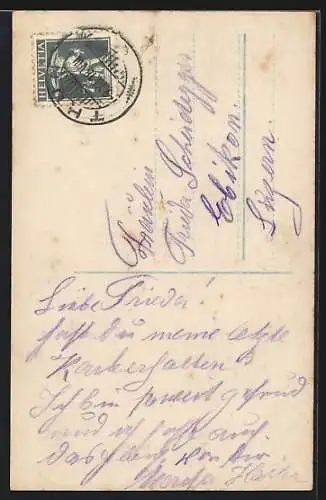 HELVETIA
Fräulein
Frieda Scheidegger
Ebikon.
Luzern.
Liebe Frieda!
hast Du meine letzte
Karte erhalten
Ich bin soweit gesund
und ich hoffe auch
das selbe von Dir.